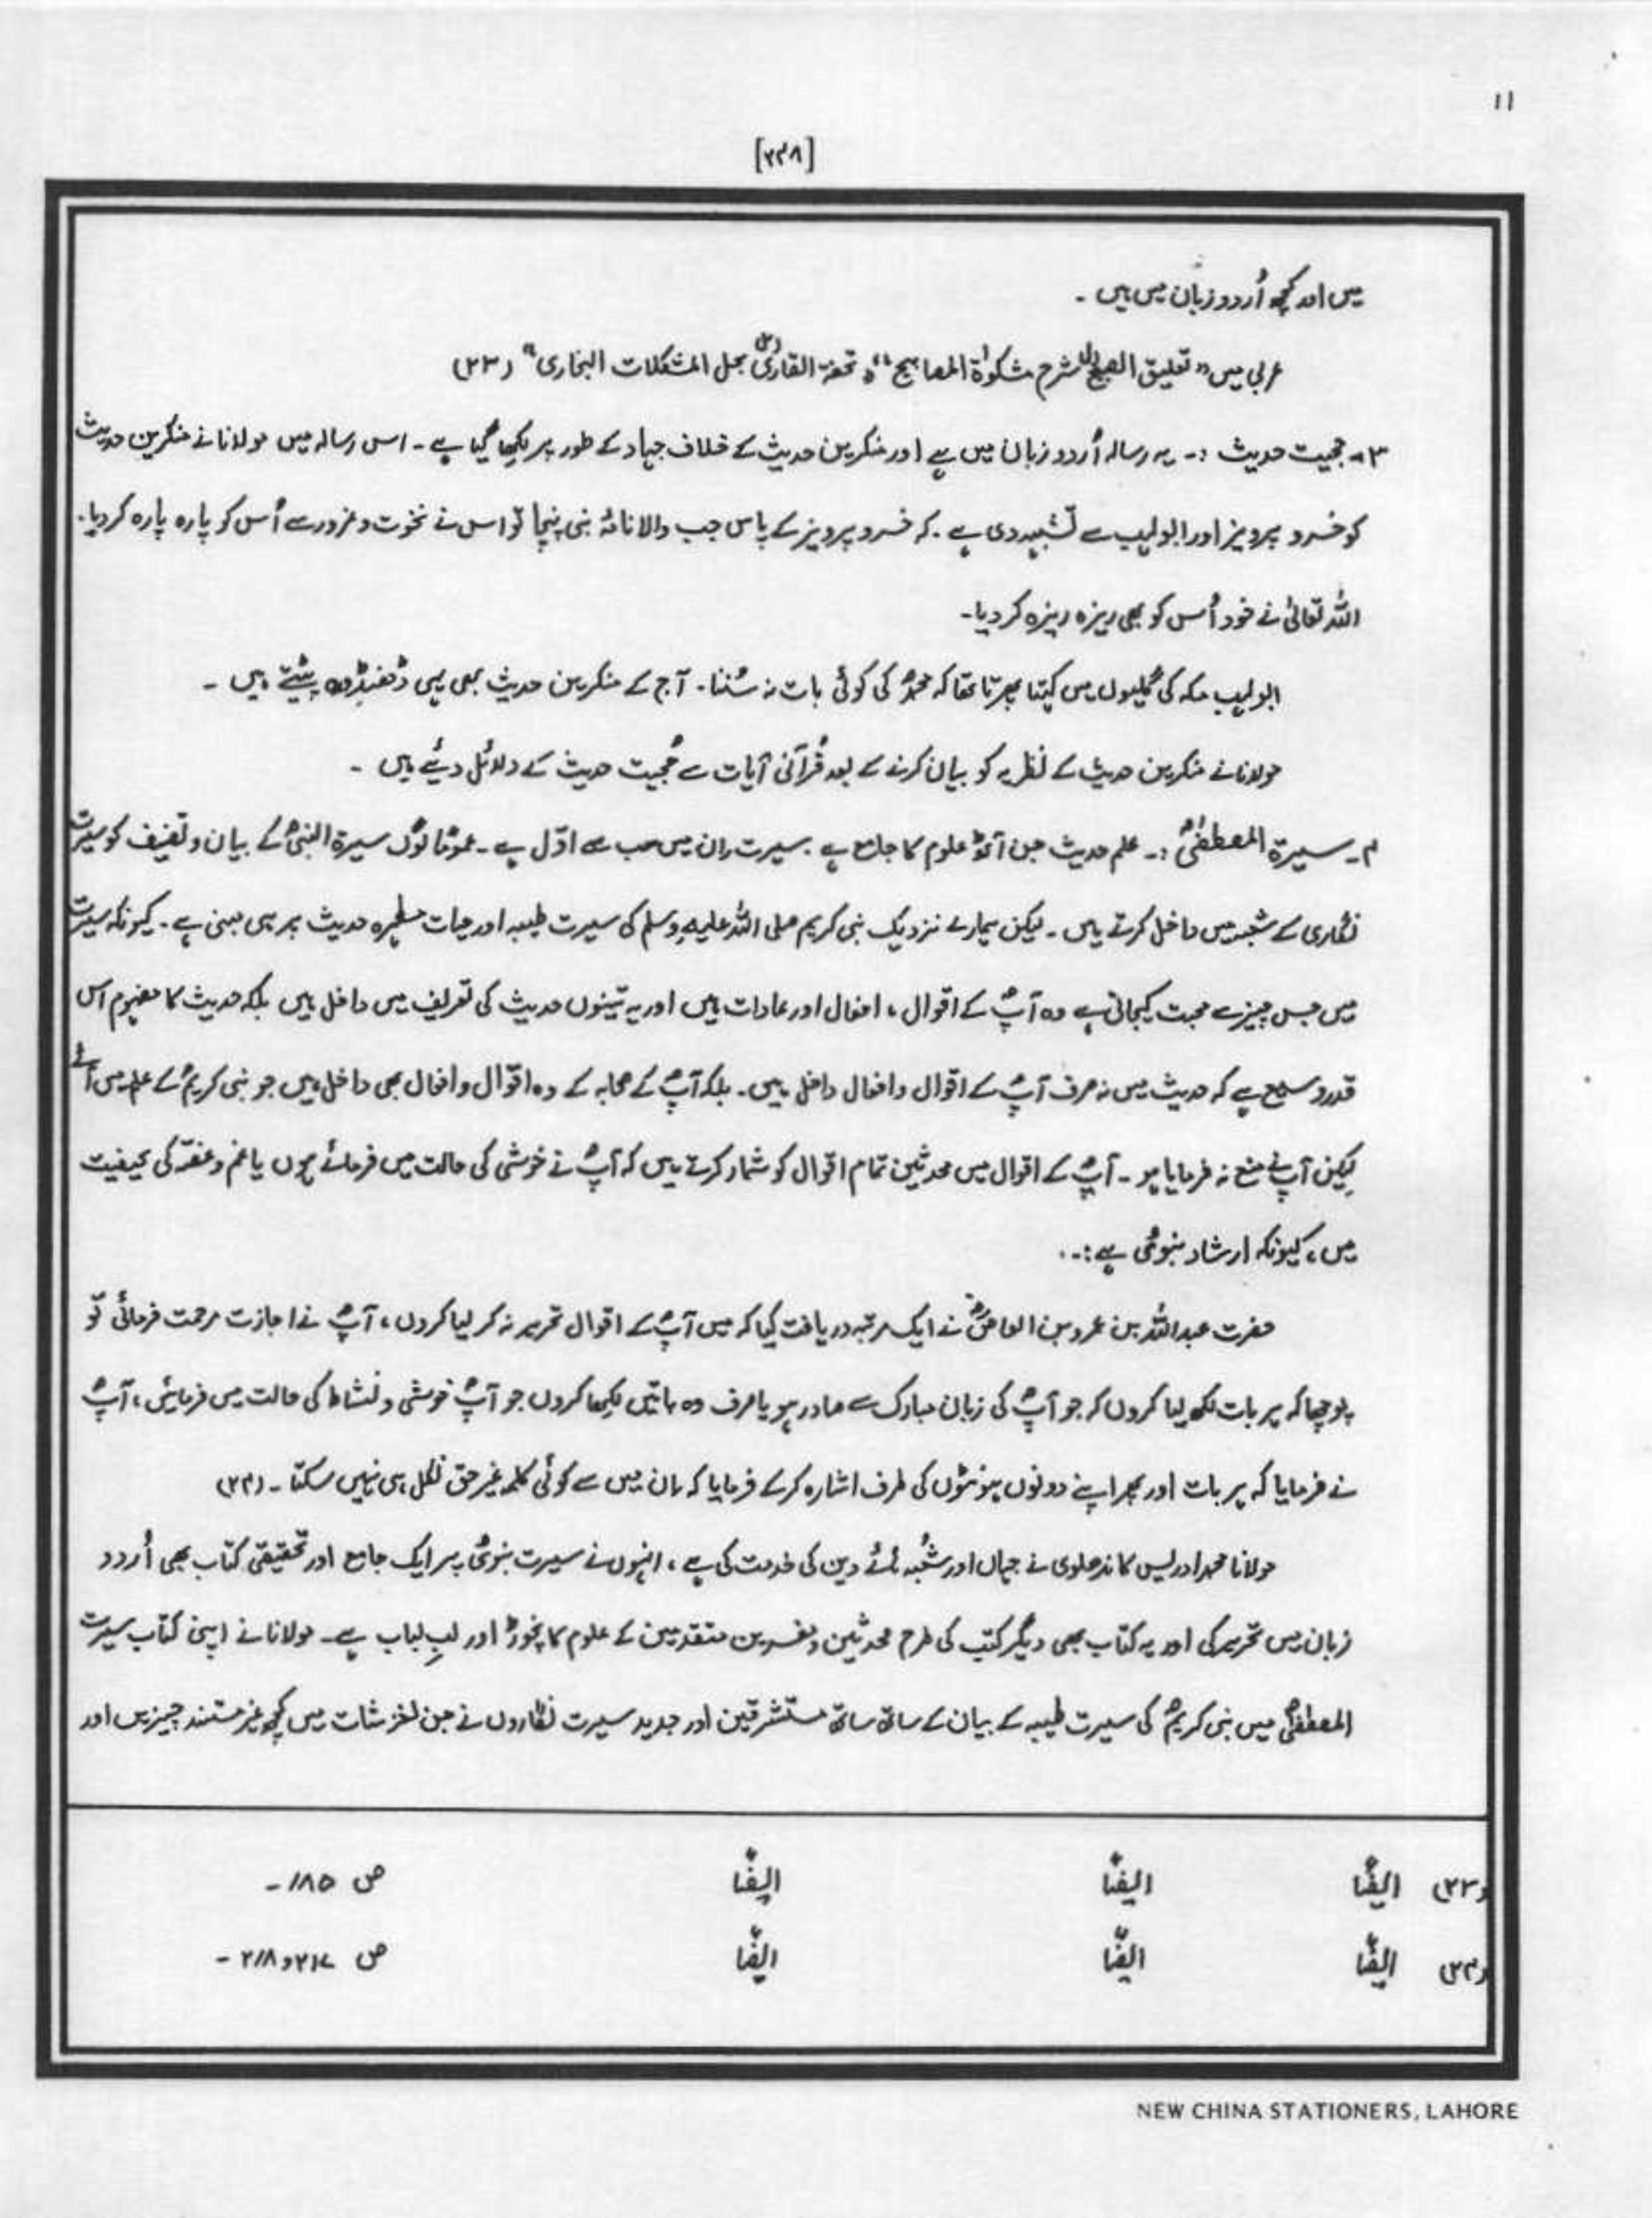 ۱۱
[۲۳۸]
میں اور کچھ اُردو زبان میں ہیں ۔
عربی میں "تعلیق الصبیح شرح مشکوٰۃ المصابیح" و "تحفۃ القاری بحل المشکلات البخاری" (۲۳)
۳۔ حجیت حدیث :۔ یہ رسالہ اُردو زبان میں ہے اور منکرین حدیث کے خلاف جہاد کے طور پر لکھا گیا ہے ۔ اس رسالہ میں مولانا نے منکرین حدیث
کو خسرو پرویز اور ابولہب سے تشبیہ دی ہے ۔ کہ خسرو پرویز کے پاس جب والا نامۂ نبی پہنچا تو اس نے نخوت و غرور سے اُس کو پارہ پارہ کر دیا ۔
اللہ تعالیٰ نے خود اُس کو بھی ریزہ ریزہ کر دیا ۔
ابولہب مکہ کی گلیوں میں کہتا پھرتا تھا کہ محمدؐ کی کوئی بات نہ سُننا ۔ آج کے منکرین حدیث بھی یہی ڈھنڈورہ پیٹتے ہیں ۔
مولانا نے منکرین حدیث کے نظریہ کو بیان کرنے کے بعد قُرآنی آیات سے حُجیت حدیث کے دلائل دیئے ہیں ۔
۴۔ سیرۃ المصطفیٰؐ :۔ علم حدیث جن آٹھ علوم کا جامع ہے ۔ سیرت ان میں سب سے اوّل ہے ۔ عمومًا لوگ سیرۃ النبیؐ کے بیان و تصنیف کو سیرت
نگاری کے شعبہ میں داخل کرتے ہیں ۔ لیکن ہمارے نزدیک نبی کریم صلی اللہ علیہ وسلم کی سیرت طیبہ اور حیات مطہرہ حدیث پر ہی مبنی ہے ۔ کیونکہ سیرت
میں جس چیز سے محبت کیجاتی ہے وہ آپؐ کے اقوال ، افعال اور عادات ہیں اور یہ تینوں حدیث کی تعریف میں داخل ہیں بلکہ حدیث کا مفہوم اس
قدر وسیع ہے کہ حدیث میں نہ صرف آپؐ کے اقوال و افعال داخل ہیں ۔ بلکہ آپؐ کے صحابہ کے وہ اقوال و افعال بھی داخل ہیں جو نبی کریمؐ کے علم میں آئے
لیکن آپؐ نے منع نہ فرمایا ہو ۔ آپؐ کے اقوال میں محدثین تمام اقوال کو شمار کرتے ہیں کہ آپؐ نے خوشی کی حالت میں فرمائے ہوں یا غم و غصّہ کی کیفیت
میں ، کیونکہ ارشاد نبویؐ ہے :۔
حضرت عبداللہ بن عمرو بن العاصؓ نے ایک مرتبہ دریافت کیا کہ میں آپؐ کے اقوال تحریر نہ کر لیا کروں ، آپؐ نے اجازت مرحمت فرمائی تو
پوچھا کہ ہر بات لکھ لیا کروں کہ جو آپؐ کی زبان مبارک سے صادر ہو یا صرف وہ باتیں لکھا کروں جو آپؐ خوشی و نشاط کی حالت میں فرمائیں ، آپؐ
نے فرمایا کہ ہر بات اور پھر اپنے دونوں ہونٹوں کی طرف اشارہ کر کے فرمایا کہ ان میں سے کوئی کلمہ غیر حق نکل ہی نہیں سکتا ۔ (۲۴)
مولانا محمد ادریس کاندھلوی نے جہاں اور شُعبہ ہائے دین کی خدمت کی ہے ، انہوں نے سیرت نبویؐ پر ایک جامع اور تحقیقی کتاب بھی اُردو
زبان میں تحریر کی اور یہ کتاب بھی دیگر کتب کی طرح محدثین و مفسرین متقدمین کے علوم کا نچوڑ اور لبِ لباب ہے ۔ مولانا نے اپنی کتاب سیرت
المصطفیٰؐ میں نبی کریمؐ کی سیرت طیبہ کے بیان کے ساتھ ساتھ مستشرقین اور جدید سیرت نگاروں نے جن لغزشات میں کچھ غیر مستند چیزیں اور
(۲۳) ایضًا ایضًا ایضًا ص ۱۸۵ ۔
(۲۴) ایضًا ایضًا ایضًا ص ۲۱۷ و ۲۱۸ ۔
NEW CHINA STATIONERS, LAHORE